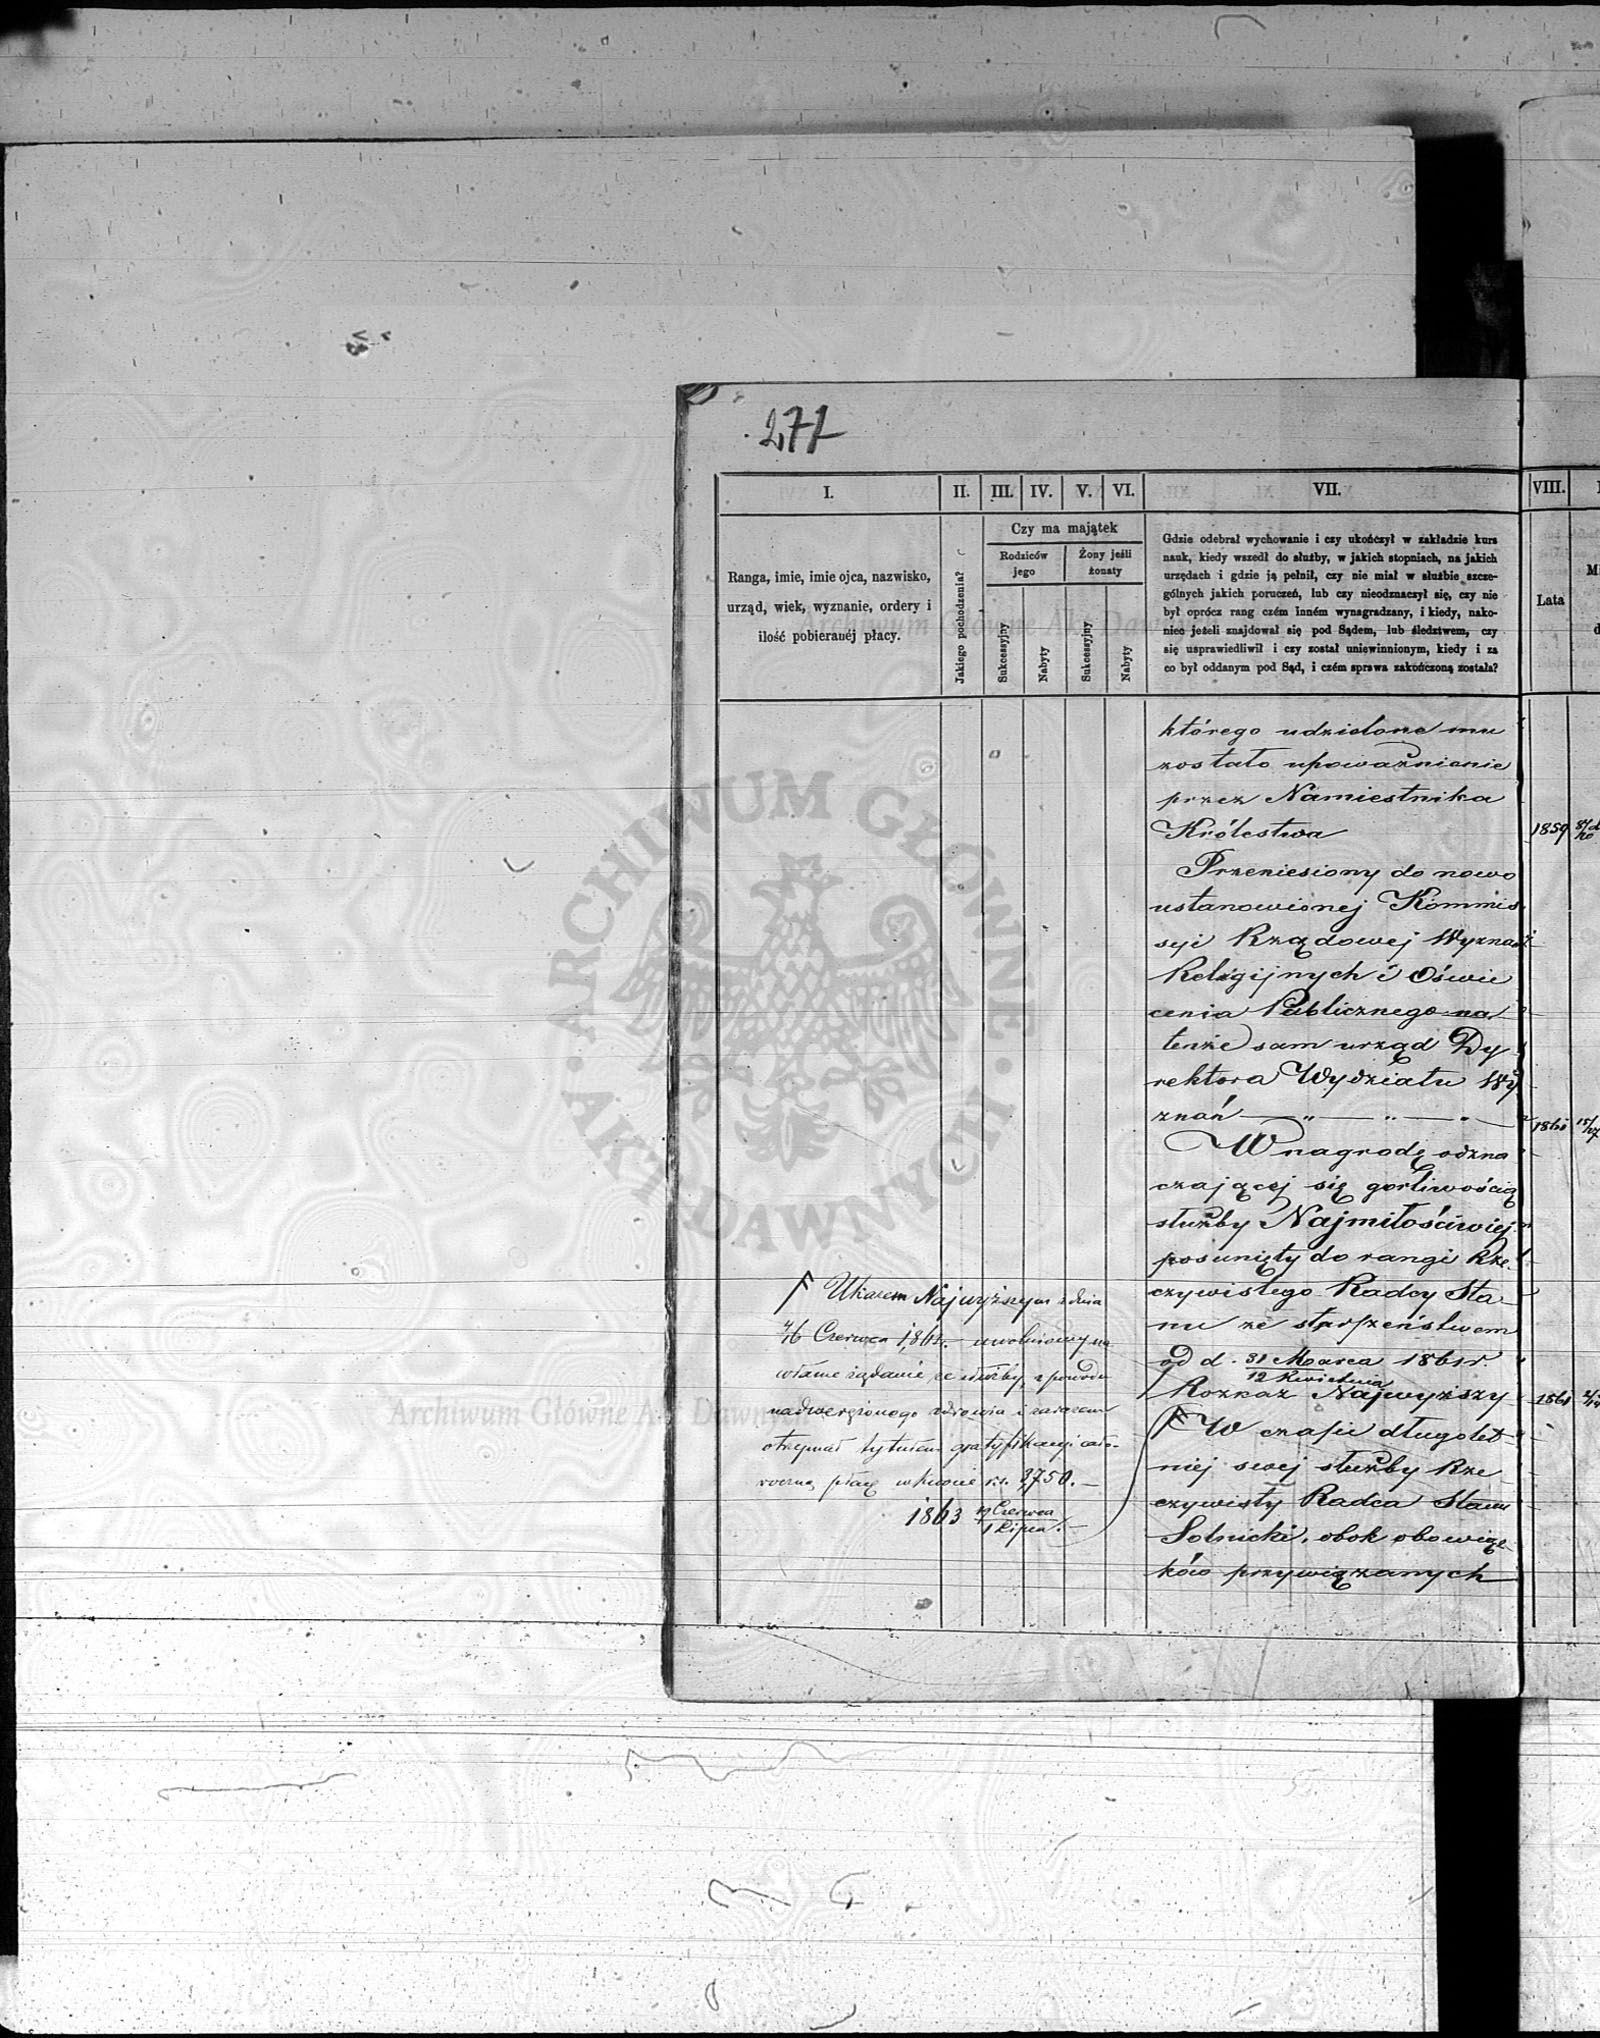 277
I. II. III. IV. V. VI. VII. VIII.
Ranga, imie, imie ojca, nazwisko,
urząd, wiek, wyznanie, ordery i
ilość pobieranéj płacy.
Jakiego pochodzenia?
Czy ma majątek
Rodziców
jego
Żony jeśli
żonaty
Sukcessyjny
Nabyty
Sukcessyjny
Nabyty
Gdzie odebrał wychowanie i czy ukończył w zakładzie kurs
nauk, kiedy wszedł do służby, w jakich stopniach, na jakich
urzędach i gdzie ją pełnił, czy nie miał w służbie szcze-
gólnych jakich poruczeń, lub czy nieodznaczył się, czy nie
był oprócz rang czém inném wynagradzany, i kiedy, nako-
niec jeżeli znajdował się pod Sądem, lub śledztwem, czy
się usprawiedliwił i czy został uniewinnionym, kiedy i za
co był oddanym pod Sąd, i czém sprawa zakończoną została?
Lata
którego udzielone mu
zostało upoważnienie
przez Namiestnika
Królestwa 1859
Przeniesiony do nowo
ustanowionej Kommis
syi Rządowej Wyznań
Religijnych i Oświe
cenia Publicznego na
tenże sam urząd Dy
rektora Wydziału Wy
znań — „ — „ — „ — 1861 15/27
W nagrodę odzna
czającej się gorliwością
służby Najmiłościwiej
posunięty do rangi Rze
czywistego Radcy Sta
nu ze starszeństwem
od d. 31 Marca 1861 r.
12 Kwietnia
Rozkaz Najwyższy 1861
W czasie długolet
niej swej służby Rze
czywisty Radca Stanu
Solnicki, obok obowiąz
ków przywiązanych
Ukazem Najwyższym z dnia
Czerwca uwolniony na
własne żądanie ze służby, z powodu
nadwerężonego zdrowia i zarazem
otrzymał tytułem gratyfikacyi cało-
roczną płacę w kwocie rs. 3,750. —
1863 Czerwca
1 Lipca. —
ARCHIWUM GŁÓWNE · AKT DAWNYCH ·
Archiwum Główne Akt Dawnych
Archiwum Główne Akt Dawnych